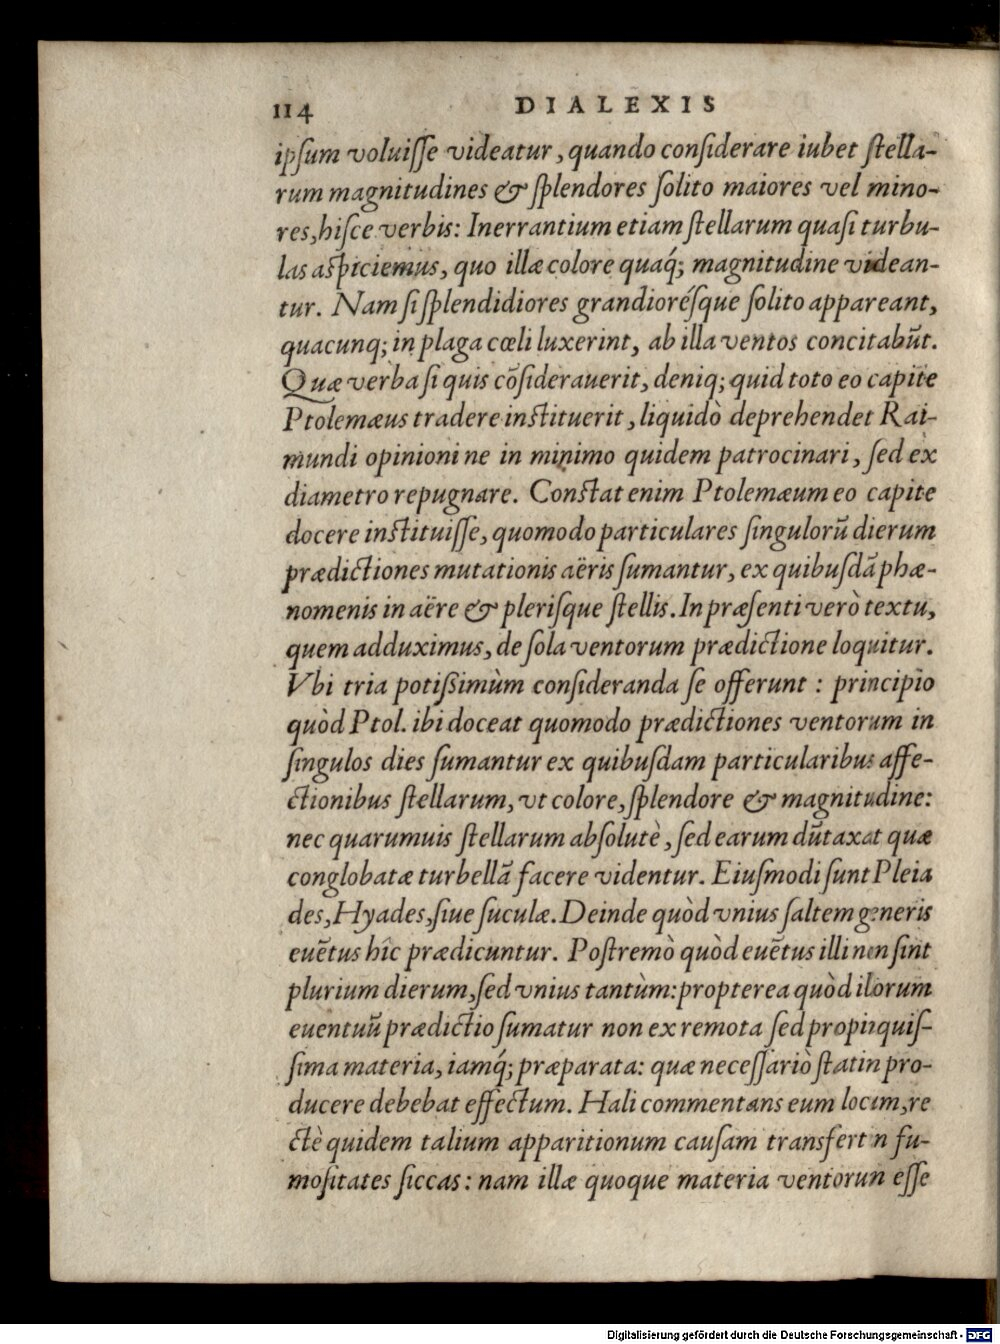 114 DIALEXIS
ipſum voluiſſe videatur, quando conſiderare iubet ſtella-
rum magnitudines & ſplendores ſolito maiores vel mino-
res, hiſce verbis: Inerrantium etiam ſtellarum quaſi turbu-
las aſpiciemus, quo illæ colore quaq́; magnitudine videan-
tur. Nam ſi ſplendidiores grandiorésque ſolito appareant,
quacunq; in plaga cœli luxerint, ab illa ventos concitabūt.
Quæ verba ſi quis cōſiderauerit, deniq; quid toto eo capite
Ptolemæus tradere inſtituerit, liquidò deprehendet Rai-
mundi opinioni ne in minimo quidem patrocinari, ſed ex
diametro repugnare. Conſtat enim Ptolemæum eo capite
docere inſtituiſſe, quomodo particulares ſingulorū dierum
prædictiones mutationis aëris ſumantur, ex quibuſdā phæ-
nomenis in aëre & pleriſque ſtellis. In præſenti verò textu,
quem adduximus, de ſola ventorum prædictione loquitur.
Vbi tria potiſſimùm conſideranda ſe offerunt: principio
quòd Ptol. ibi doceat quomodo prædictiones ventorum in
ſingulos dies ſumantur ex quibuſdam particularibus affe-
ctionibus ſtellarum, vt colore, ſplendore & magnitudine:
nec quarumuis ſtellarum abſolutè, ſed earum dūtaxat quæ
conglobatæ turbellā facere videntur. Eiuſmodi ſunt Pleia
des, Hyades, ſiue ſuculæ. Deinde quòd vnius ſaltem generis
euētus hîc prædicuntur. Poſtremò quòd euētus illi non ſint
plurium dierum, ſed vnius tantùm: propterea quòd illorum
euentuū prædictio ſumatur non ex remota ſed propinquiſ-
ſima materia, iamq́; præparata: quæ neceſſariò ſtatim pro-
ducere debebat effectum. Hali commentans eum locum, re
ctè quidem talium apparitionum cauſam transfert in fu-
moſitates ſiccas: nam illæ quoque materia ventorum eſſe
Digitalisierung gefördert durch die Deutsche Forschungsgemeinschaft - DFG